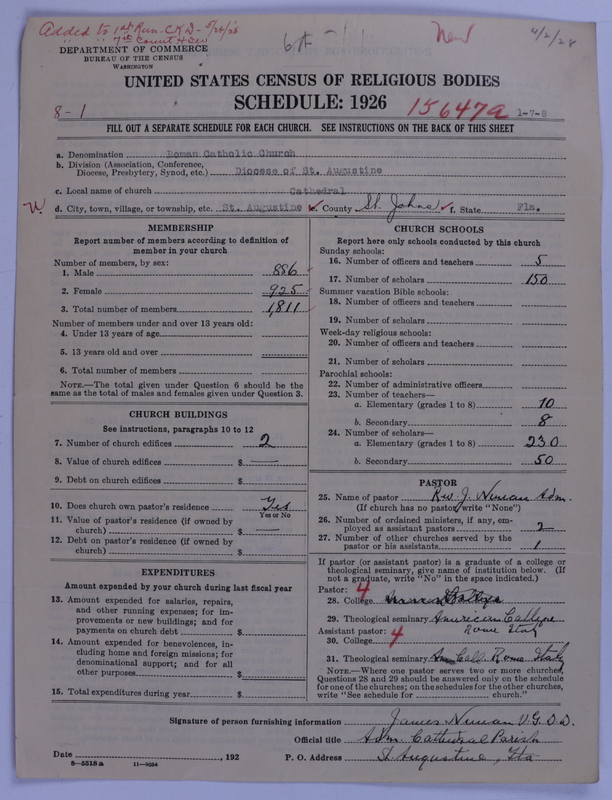 Added to 1st Run. C.K.D. 5/24/28
" " 7th Count
6A
New
4/2/28
DEPARTMENT OF COMMERCE
BUREAU OF THE CENSUS
WASHINGTON
UNITED STATES CENSUS OF RELIGIOUS BODIES
SCHEDULE: 1926
8-1
15647a 1-7-8
FILL OUT A SEPARATE SCHEDULE FOR EACH CHURCH. SEE INSTRUCTIONS ON THE BACK OF THIS SHEET
a. Denomination Roman Catholic Church
b. Division (Association, Conference,
Diocese, Presbytery, Synod, etc.) Diocese of St. Augustine
c. Local name of church Cathedral
d. City, town, village, or township, etc. St. Augustine e. County St. Johns f. State Fla.
MEMBERSHIP
Report number of members according to definition of
member in your church
Number of members, by sex:
1. Male 886
2. Female 925
3. Total number of members 1,811
Number of members under and over 13 years old:
4. Under 13 years of age
5. 13 years old and over
6. Total number of members
NOTE.—The total given under Question 6 should be the
same as the total of males and females given under Question 3.
CHURCH BUILDINGS
See instructions, paragraphs 10 to 12
7. Number of church edifices 2
8. Value of church edifices $ —
9. Debt on church edifices $
10. Does church own pastor's residence Yes
Yes or No
11. Value of pastor's residence (if owned by
church) $ —
12. Debt on pastor's residence (if owned by
church) $
EXPENDITURES
Amount expended by church during last fiscal year
13. Amount expended for salaries, repairs,
and other running expenses; for im-
provements or new buildings; and for
payments on church debt $
14. Amount expended for benevolences, in-
cluding home and foreign missions; for
denominational support; and for all
other purposes $
15. Total expenditures during year $
CHURCH SCHOOLS
Report here only schools conducted by this church
Sunday schools:
16. Number of officers and teachers 5
17. Number of scholars 150
Summer vacation Bible schools:
18. Number of officers and teachers
19. Number of scholars
Week-day religious schools:
20. Number of officers and teachers
21. Number of scholars
Parochial schools:
22. Number of administrative officers
23. Number of teachers—
a. Elementary (grades 1 to 8) 10
b. Secondary 8
24. Number of scholars—
a. Elementary (grades 1 to 8) 230
b. Secondary 50
PASTOR
25. Name of pastor Rev J. Nunan Adm.
(If church has no pastor, write "None")
26. Number of ordained ministers, if any, em-
ployed as assistant pastors 2
27. Number of other churches served by the
pastor or his assistants 1
If pastor (or assistant pastor) is a graduate of a college or
theological seminary, give name of institution below. (If
not a graduate, write "No" in the space indicated.)
Pastor: 4
28. College
29. Theological seminary American College
Rome Italy
Assistant pastor: 4
30. College
31. Theological seminary Am Coll. Rome Italy
NOTE.—Where one pastor serves two or more churches,
Questions 28 and 29 should be answered only on the schedule
for one of the churches; on the schedules for the other churches,
write "See schedule for church."
Signature of person furnishing information James Nunan V.G. D.D.
Official title Adm. Cathedral Parish
Date , 192 P. O. Address St Augustine, Fla
8—5518 a 11—9034